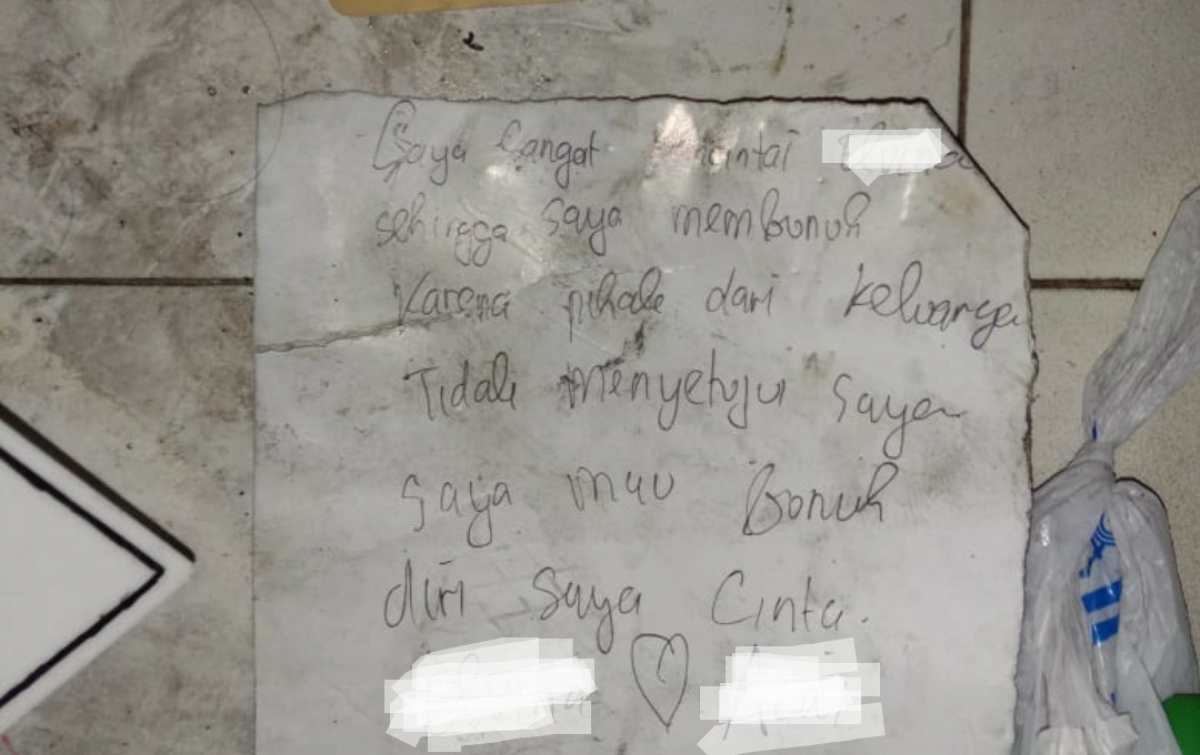 Saya Sangat
sehingga saya membunuh
Karena pihak dari keluarga
Tidak menyetujui Saya
Saya mau Bonuh
diri Saya Cinta.